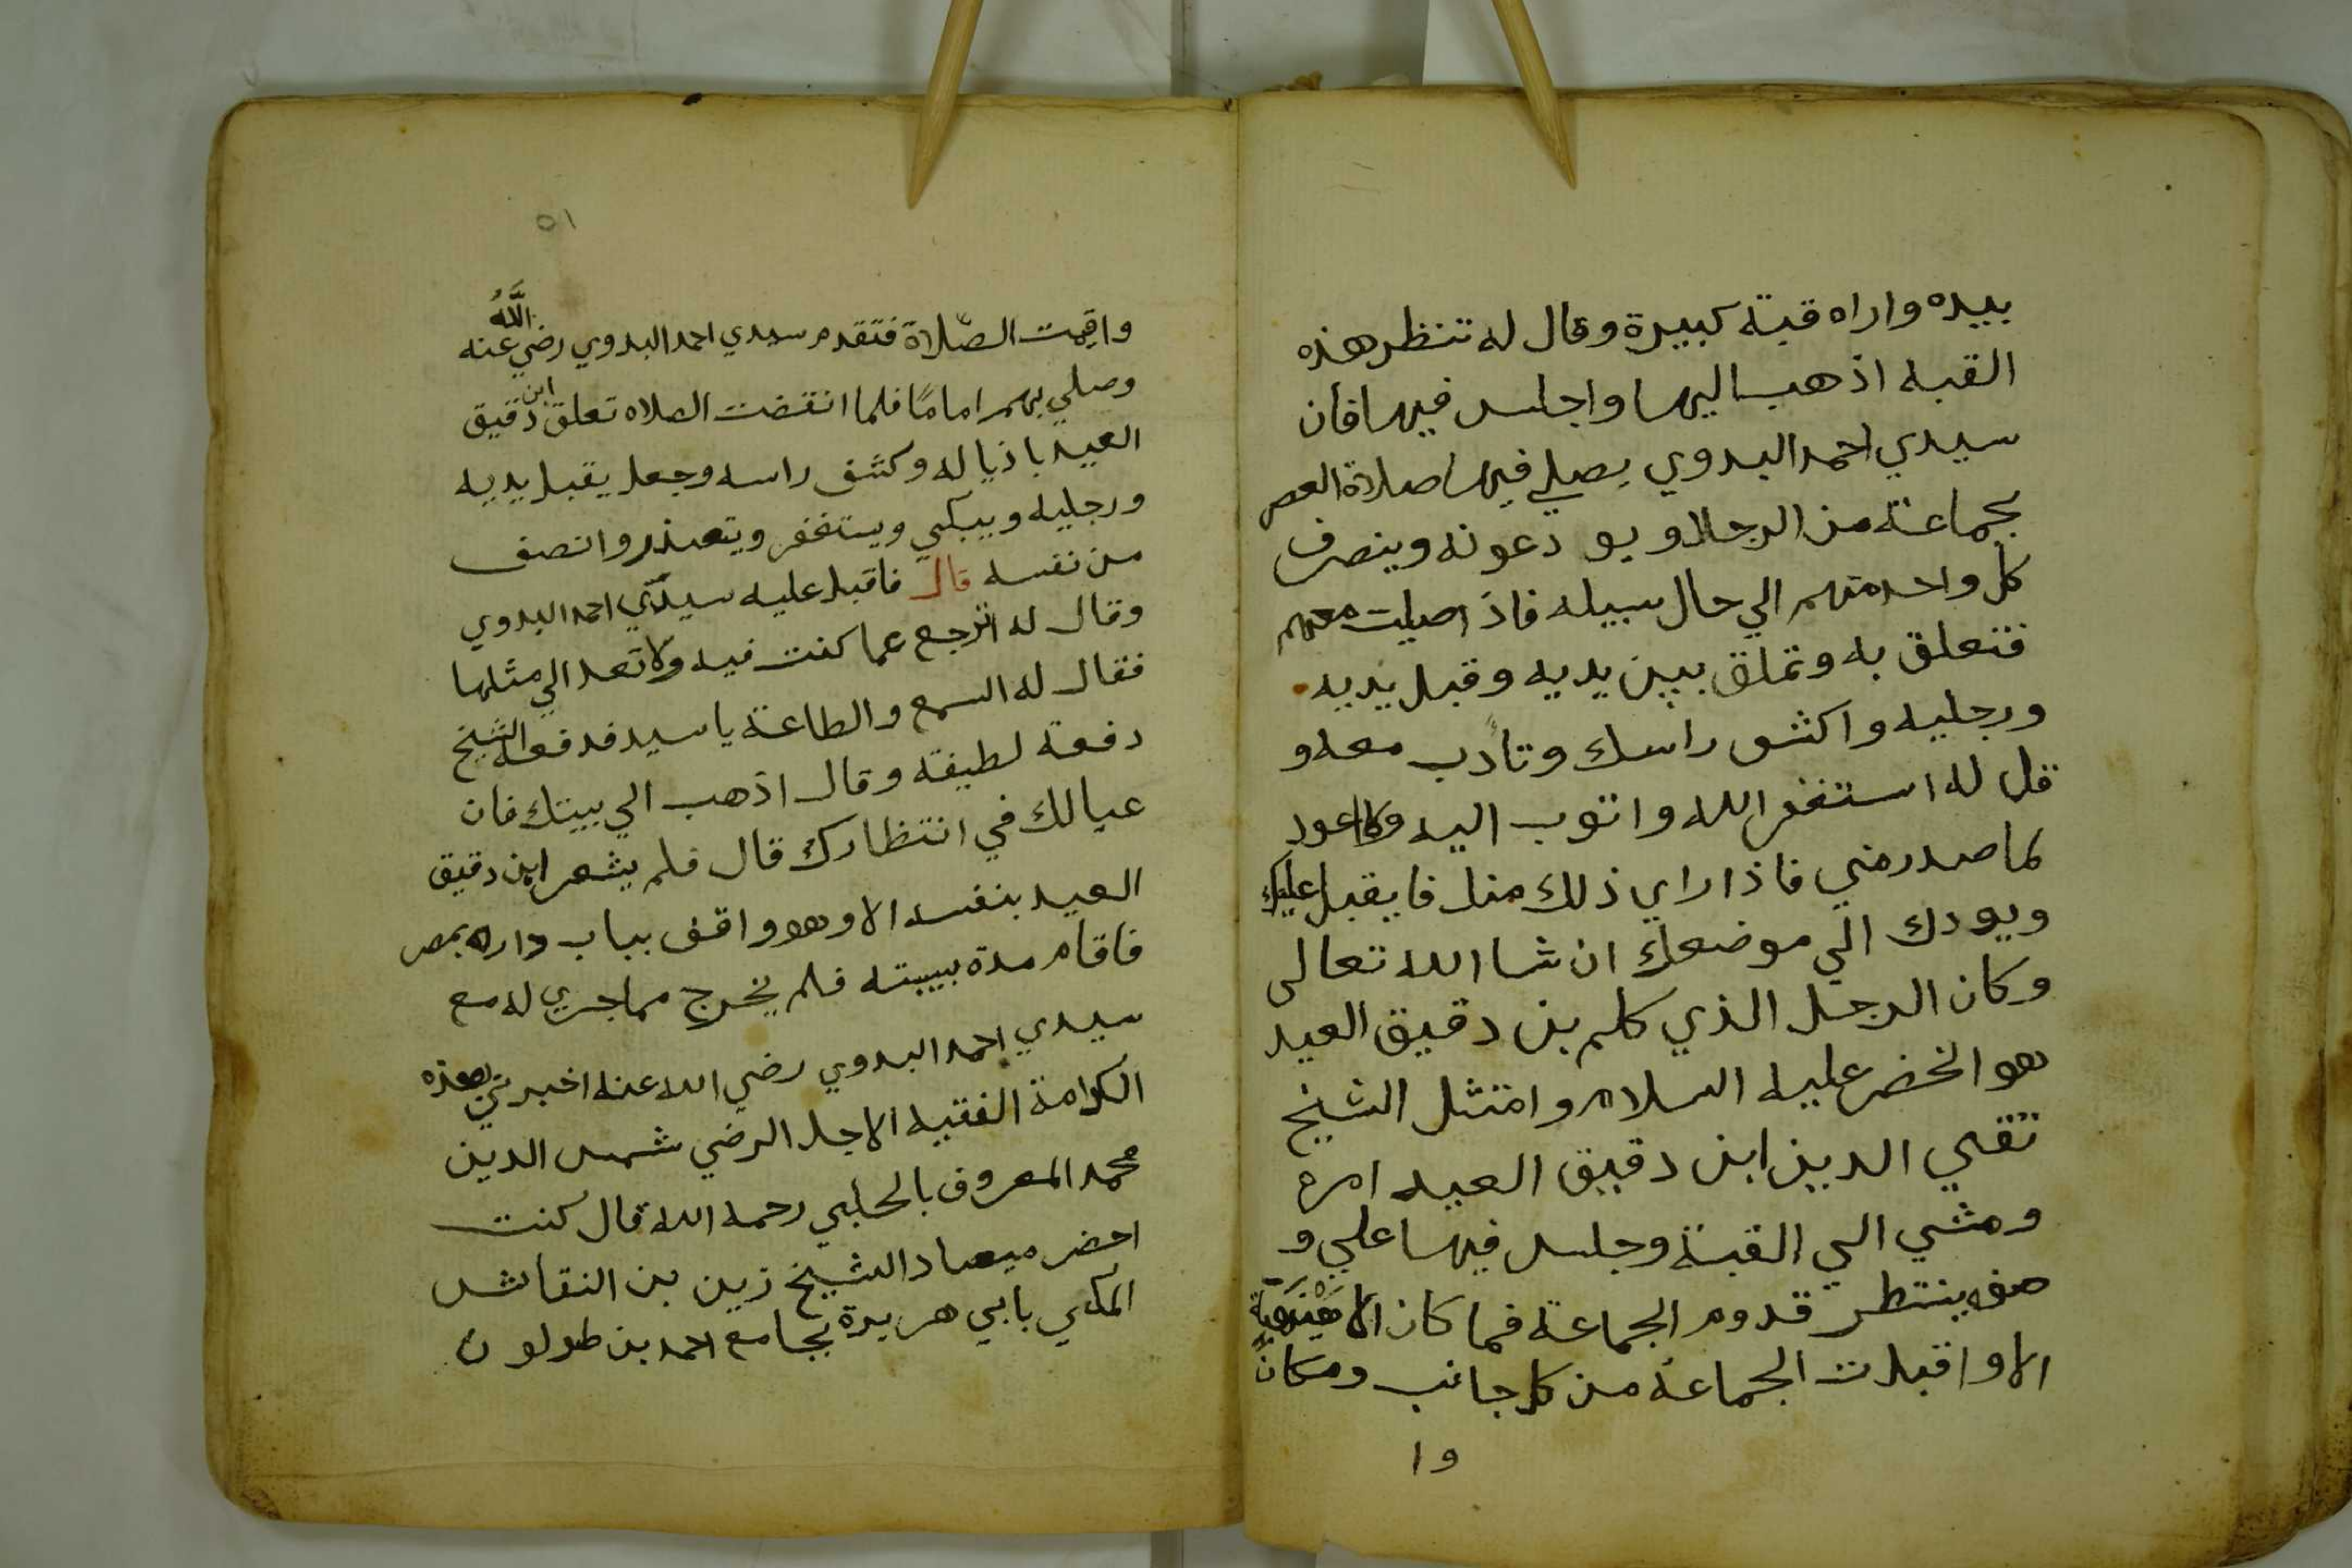 بيده واراه قبة كبيرة وقال له تنظر هذه
القبه اذهب اليها واجلس فيها فأن
سيدي احمد البدوي يصلي فيها صلاة العصر
بجماعة من الرجال ويودعونه وينصرف
كل واحد منهم الي حال سبيله فاذا صليت معهم
فتعلق به وتملق بين يديه وقبل يديه
ورجليه واكشف راسك وتأدب معه و
قل له استغفر الله واتوب اليه ولا اعود
لما صدر مني فاذا راي ذلك منك فا يقبل عليك
ويودك الي موضعك ان شا الله تعالى
وكان الرجل الذي كلم بن دقيق العيد
هو الخضر عليه السلام وامتثل الشيخ
تقي الدين ابن دقيق العيد امره
ومشي الي القبة وجلس فيها علي و
ينتظر قدوم الجماعة فما كان الا هنيهة
الا واقبلت الجماعة من كل جانب ومكان
وا
٥١
واقيمت الصلاة فتقدم سيدي احمد البدوي رضي الله عنه
وصلي بهم اماما فلما انقضت الصلاه تعلق ابن دقيق
العيد باذياله وكشف راسه وجعل يقبل يديه
ورجليه ويبكي ويستغفر ويتعذر وانصف
من نفسه قال فاقبل عليه سيدي احمد البدوي
وقال له اترجع عما كنت فيه ولا تعد الي مثلها
فقال له السمع والطاعة يا سيد فدفعه الشيخ
دفعة لطيفة وقال اذهب الي بيتك فان
عيالك في انتظارك قال فلم يشعر ابن دقيق
العيد بنفسه الا وهو واقف بباب داره بمصر
فاقام مدة ببيته فلم يخرج مما جري له مع
سيدي احمد البدوي رضي الله عنه اخبرني بهذه
الكرامة الفقيه الاجل الرضي شمس الدين
محمد المعروف بالحلبي رحمه الله قال كنت
احضر ميعاد الشيخ زين بن النقاش
المكي بابي هريرة بجامع احمد بن طولون